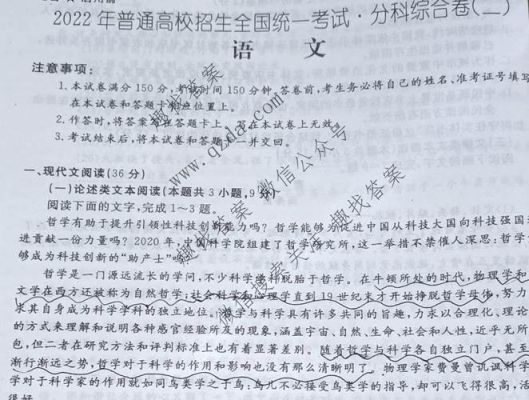 2022年普通高校招生全国统一考试·分科综合卷(二)
语 文
注意事项:
1.本试卷满分150分,考试时间150分钟,答卷前,考生务必将自己的姓名、准考证号填写
在本试卷和答题卡相应位置上。
2.作答时,将答案写在答题卡上。写在本试卷上无效。
3.考试结束后,将本试卷和答题卡一并交回。
一、现代文阅读(36分)
(一)论述类文本阅读(本题共3小题,9分)
阅读下面的文字,完成1~3题。
哲学有助于提升引领性科技创新能力吗?哲学能够为促进中国从科技大国向科技强国
进贡献一份力量吗?2020年,中国科学院组建了哲学研究所,这一举措不禁催人深思:哲学
够成为科技创新的“助产士”
哲学是一门源远流长的学问,不少科学学科脱胎于哲学。在牛顿所处的时代,物理学和
文学在西方还被称为自然哲学;社会科学和心理学直到19世纪末才开始挣脱哲学母体,努力
求其自身成为科学学科的独立地位。哲学与科学具有许多共同的旨趣,力求以合理化、理论
的方式来理解和说明各种感官经验所及的现象,涵盖宇宙、自然、生命、社会和人性,近乎无所
包,但二者在研究方法和评判标准上也有着显著差别。随着哲学与科学各自独立门户,甚至
渐行渐远之势,哲学对于科学的作用和影响也没有那么清晰明了。物理学家费曼曾讥讽科学
学对于科学家的作用就如同鸟类学之于鸟:鸟儿不必接受鸟类学的指导,却可以飞得很高,活
得很好。
趣找答案
www.qzda.com
微信公众号
趣找答案
微信搜索关注:趣找答案